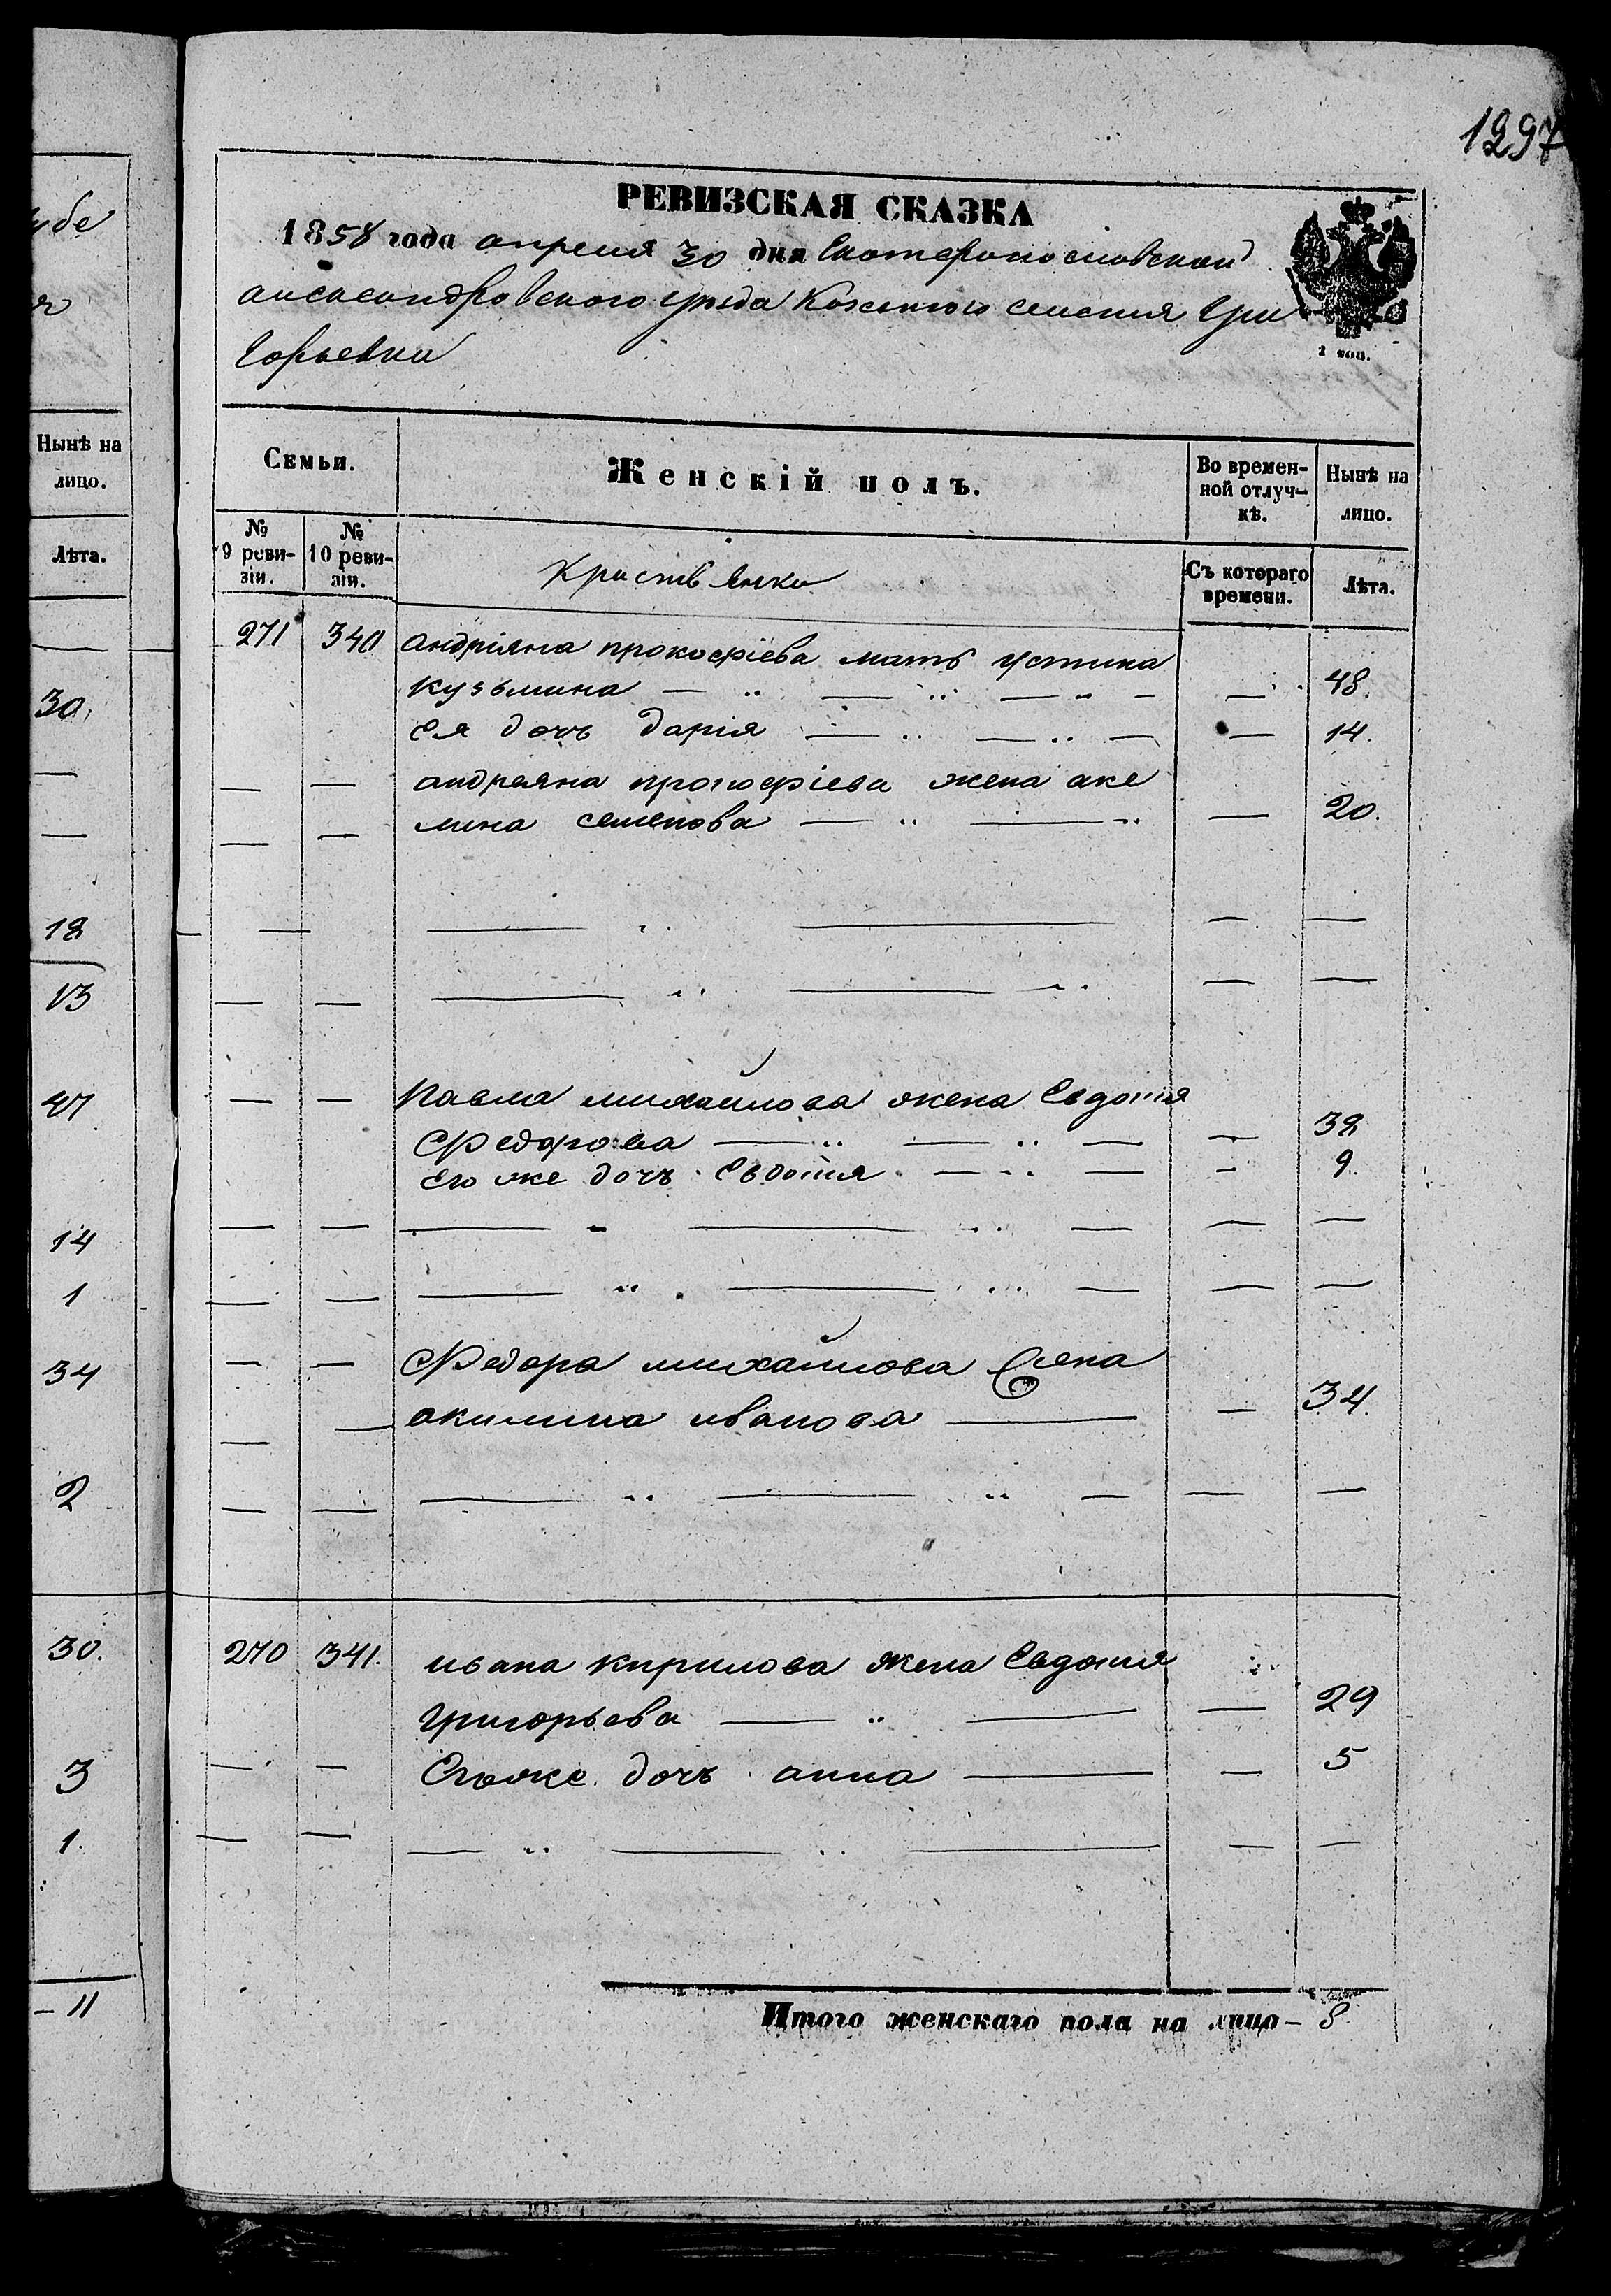 1297
РЕВИЗСКАЯ СКАЗКА
1858 года апреля 30 дня Екатеринославской
александровского уезда Казенного селения Гри
горьевки
2 коп.
Семьи.
Женскій полъ.
Во времен-
ной отлуч-
кѣ.
Нынѣ на
лицо.
№
9 реви-
зіи.
№
10 реви-
зіи.
Съ котораго
времени.
Лѣта.
271 340 андріяна прокофіева мать устина
кузьмина — — — — 48.
Ея дочь дарія — — — — 14.
— — андреяна прокофіева жена аке
— — лина семенова — — — 20.
— — Павла михайлова жена Евдокия
Федорова — — — — 38
его же дочь Евдокия — — — 9.
— — Федора михайлова жена
— — акилина иванова — — 34.
270 341. ивана кирилова жена Евдокия
григорьева — — — 29
— — Егоже дочь анна — — 5
Итого женскаго пола на лицо — 8
убе
Нынѣ на
лицо.
Лѣта.
30.
18
13
47
14
1
34
2
30.
3
1.
— 11